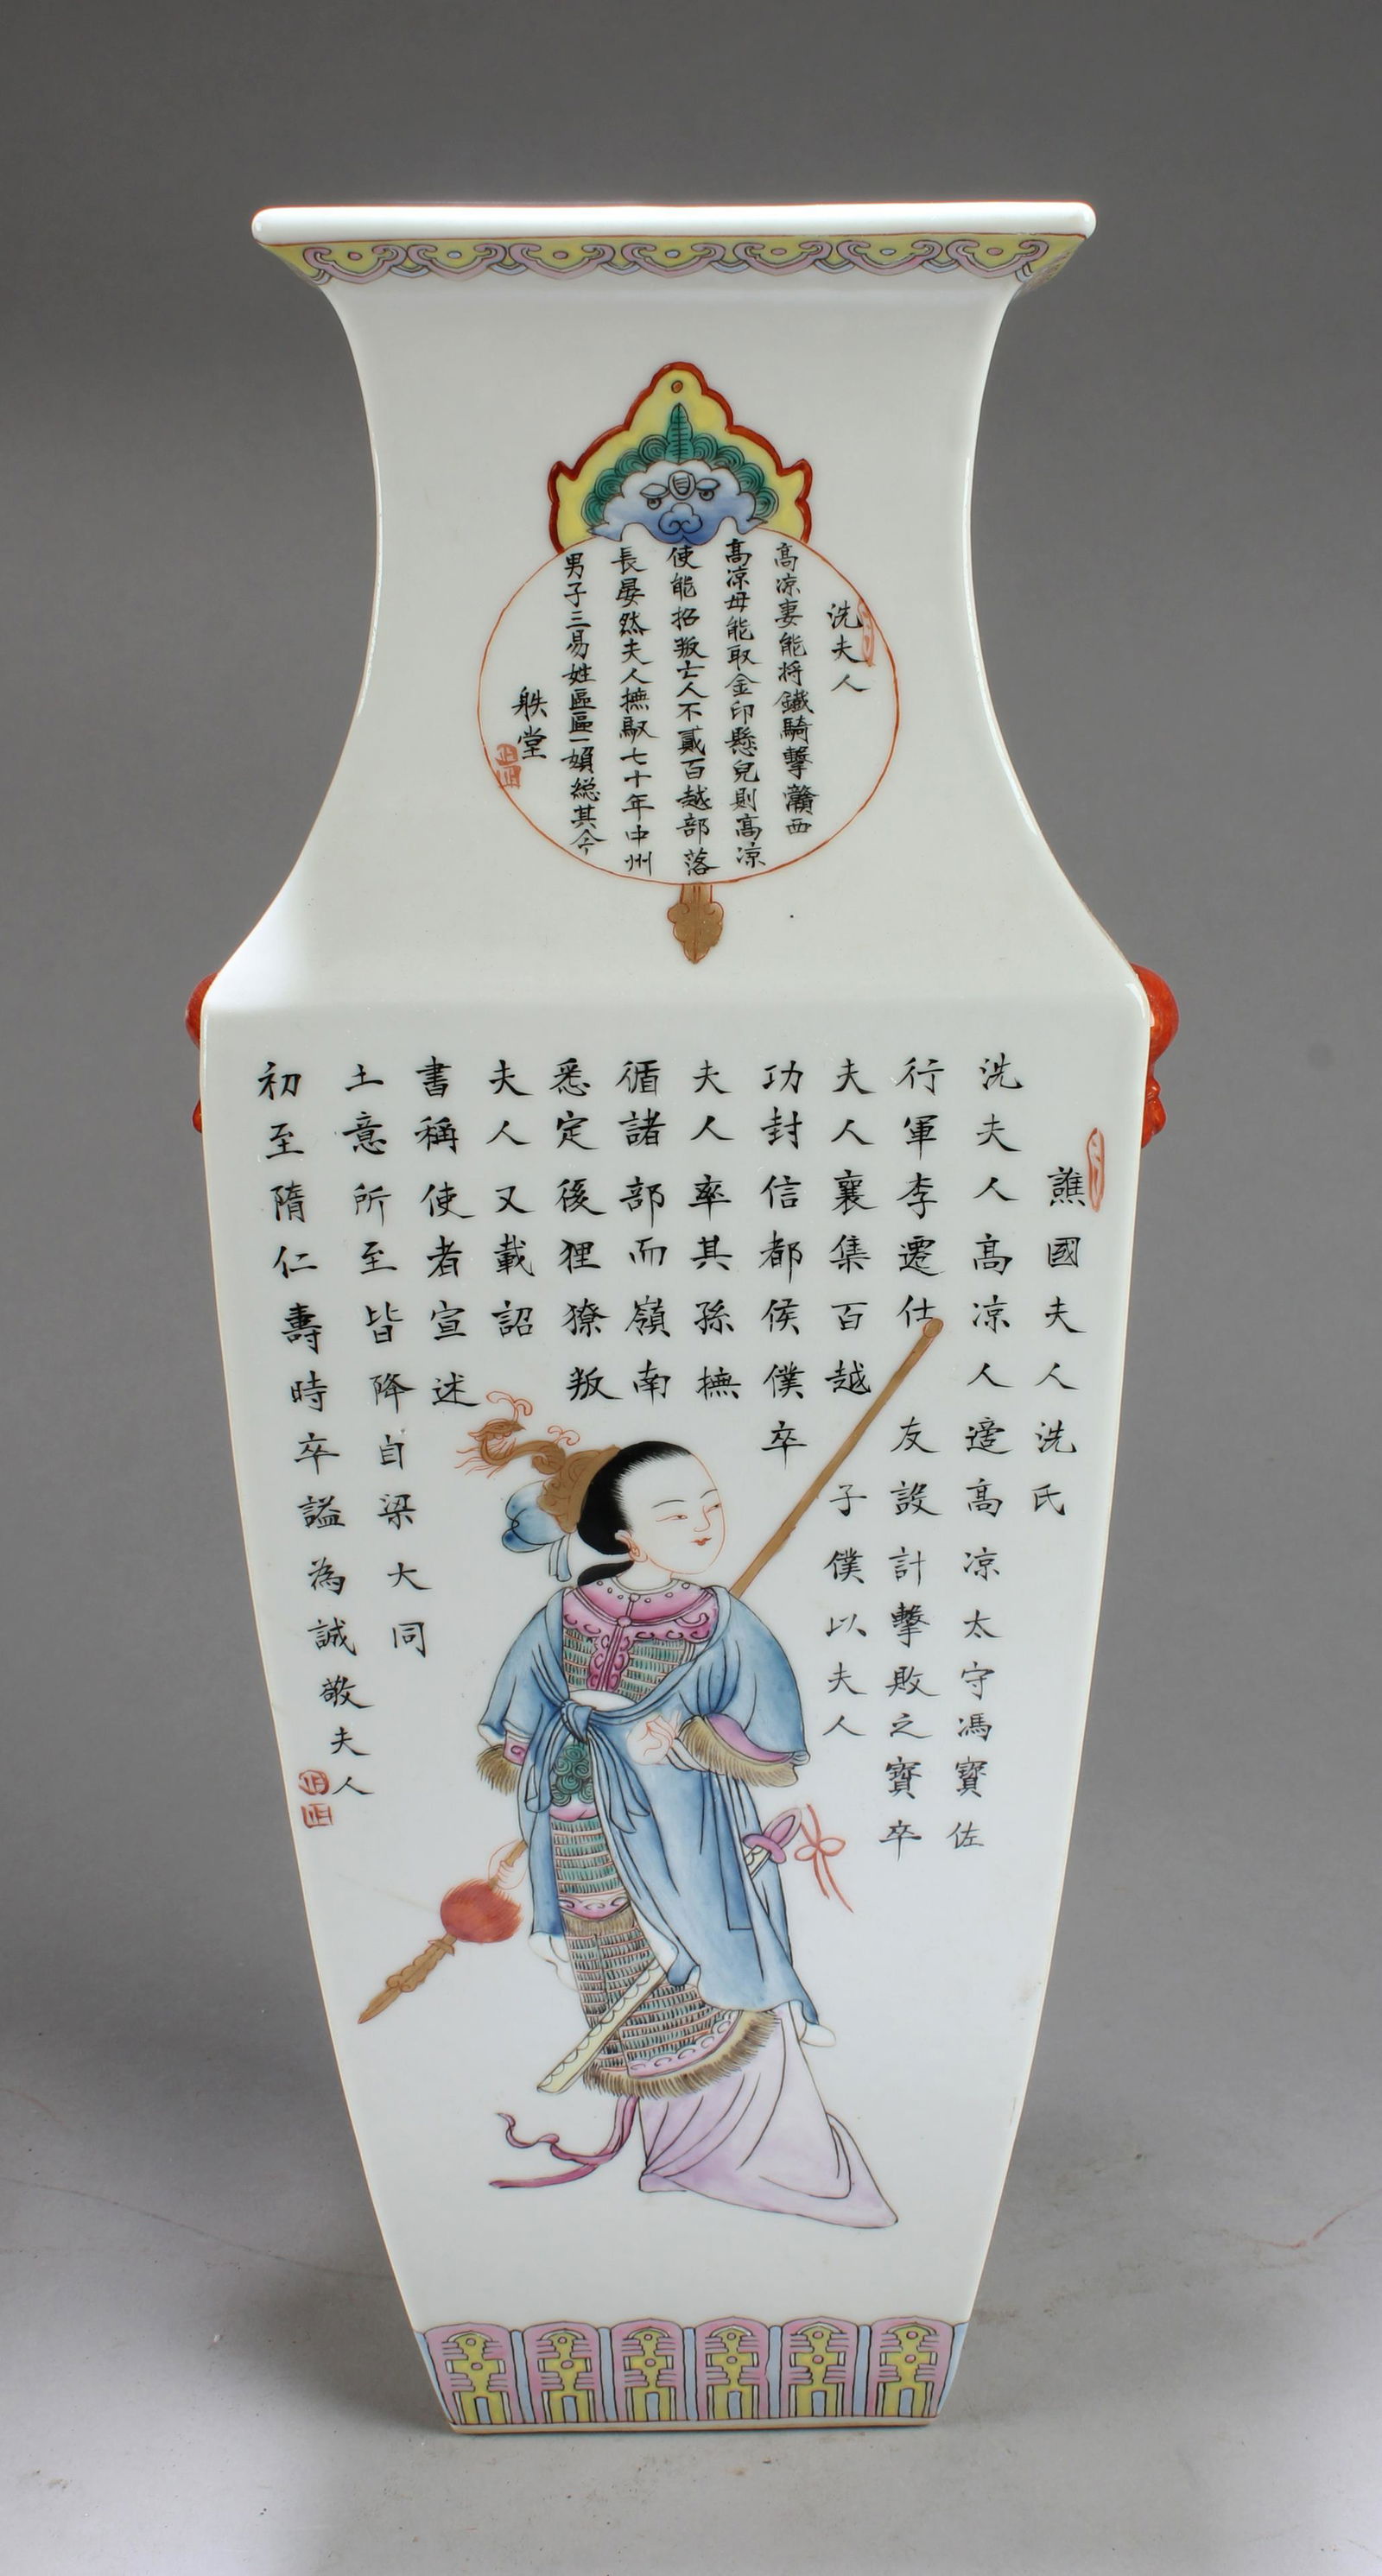 洗夫人
高凉妻能將鐵騎擊贛西
高凉母能取金印懸兒則高凉
使能招叛亡人不貳百越部落
長晏然夫人撫馭七十年中州
男子三易姓區區一頭總其今
躰堂
譙國夫人洗氏
洗夫人高凉人適高凉太守馮寶佐
行軍李遷仕友設計擊敗之寶卒
夫人襄集百越子僕以夫人
功封信都侯僕卒
夫人率其孫撫
循諸部而嶺南
悉定後狸獠叛
夫人又載詔
書稱使者宣述
土意所至皆降自梁大同
初至隋仁壽時卒謚為誠敬夫人